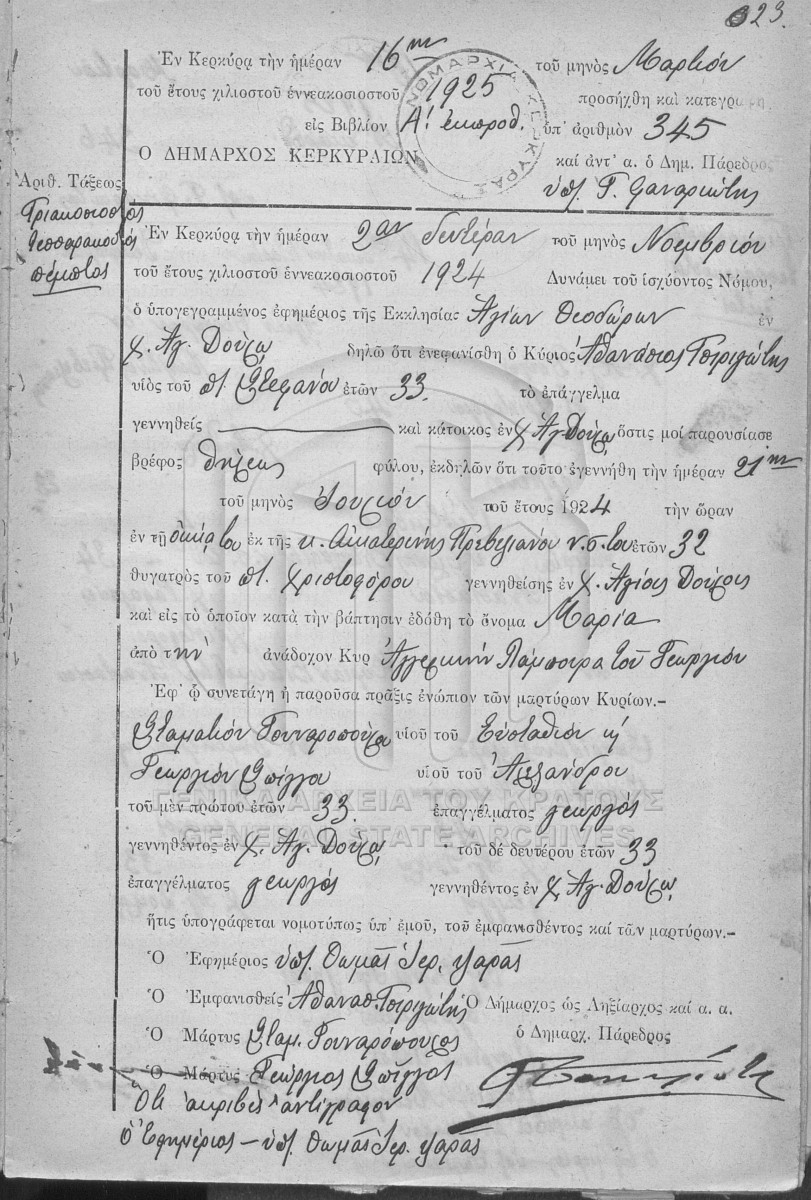 23.
Ἐν Κερκύρᾳ τὴν ἡμέραν 16ην τοῦ μηνὸς Μαρτίου
τοῦ ἔτους χιλιοστοῦ ἐννεακοσιοστοῦ 1925 προσήχθη καὶ κατεγράφη
εἰς Βιβλίον Α! ἐκπροθ. ὑπ' ἀριθμὸν 345
Ο ΔΗΜΑΡΧΟΣ ΚΕΡΚΥΡΑΙΩΝ καὶ ἀντ' α. ὁ Δημ. Πάρεδρος
ΝΟΜΑΡΧΙΑ ΚΕΡΚΥΡΑΣ
ὑπ. Γ.
Ἀριθ. Τάξεως
Τριακοσιοστὸς
τεσσαρακοστὸς
πέμπτος
Ἐν Κερκύρᾳ τὴν ἡμέραν 2αν Δευτέραν τοῦ μηνὸς Νοεμβρίου
τοῦ ἔτους χιλιοστοῦ ἐννεακοσιοστοῦ 1924 Δυνάμει τοῦ ἰσχύοντος Νόμου,
ὁ ὑπογεγραμμένος ἐφημέριος τῆς Εκκλησίας Ἁγίων Θεοδώρων ἐν
χ. Ἁγ. Δούλῳ δηλῶ ὅτι ἐνεφανίσθη ὁ Κύριος Ἀθανάσιος Τσιριγώτης
υἱὸς τοῦ π. Στεφάνου ἐτῶν 33. τὸ ἐπάγγελμα
γεννηθεὶς καὶ κάτοικος ἐν χ. Ἁγ. Δούλῳ ὅστις μοὶ παρουσίασε
βρέφος θήλεως φύλου, ἐκδηλῶν ὅτι τοῦτο ἐγεννήθη τὴν ἡμέραν 21ην
τοῦ μηνὸς Ἰουλίου τοῦ ἔτους 1924 τὴν ὥραν
ἐν τῇ οἰκίᾳ του ἐκ τῆς κ. Αἰκατερίνης Πρεβεζιάνου ν. σ. του ἐτῶν 32
θυγατρὸς τοῦ π. Χριστοφόρου γεννηθείσης ἐν χ. Ἁγίους Δούλους
καὶ εἰς τὸ ὁποῖον κατὰ τὴν βάπτισιν ἐδόθη τὸ ὄνομα Μαρία
ἀπὸ τὴν ἀνάδοχον Κυρ Ἀγγελικὴν Λάμπουρα τοῦ Γεωργίου
Ἐφ' ᾧ συνετάγη ἡ παροῦσα πρᾶξις ἐνώπιον τῶν μαρτύρων Κυρίων.—
Σταματίου Γουναροπούλου υἱοῦ τοῦ Εὐσταθίου κ
Γεωργίου Σπίγγου υἱοῦ τοῦ Ἀλεξάνδρου
τοῦ μὲν πρώτου ἐτῶν 33. ἐπαγγέλματος γεωργὸς
ΓΕΝΙΚΑ ΑΡΧΕΙΑ ΤΟΥ ΚΡΑΤΟΥΣ
GENERAL STATE ARCHIVES
γεννηθέντος ἐν χ. Ἁγ. Δούλῳ τοῦ δὲ δευτέρου ἐτῶν 33
ἐπαγγέλματος γεωργὸς γεννηθέντος ἐν χ. Ἁγ. Δούλῳ
ἥτις ὑπογράφεται νομοτύπως ὑπ' ἐμοῦ, τοῦ ἐμφανισθέντος καὶ τῶν μαρτύρων.—
Ὁ Ἐφημέριος ὑπ. Θωμᾶς Ἱερ. Ψαρᾶς
Ὁ Ἐμφανισθεὶς Ἀθανασ. Τσιριγώτης Ὁ Δήμαρχος ὡς Ληξίαρχος καὶ α. α.
Ὁ Μάρτυς Σταμ. Γουναρόπουλος ὁ Δημαρχ. Πάρεδρος
Ὁ Μάρτυς Γεώργιος Σπίγγος
Ὅτι ἀκριβὲς ἀντίγραφον
Ὁ Ἐφημέριος — ὑπ. Θωμᾶς Ἱερ. Ψαρᾶς